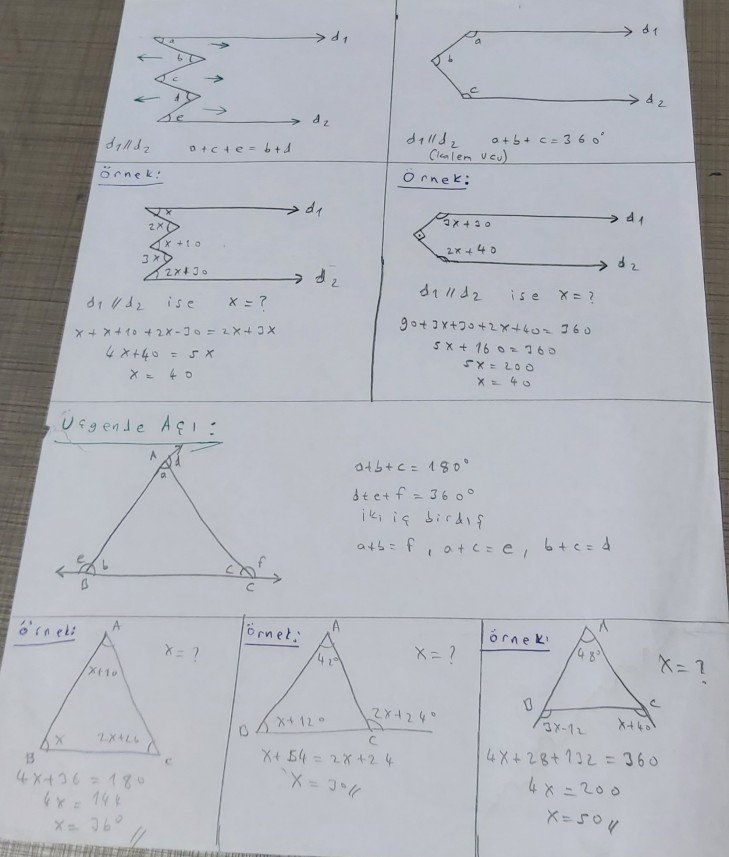 a
b
c
d
e
d1
d2
d1//d2 a+c+e=b+d
a
b
c
d1
d2
d1//d2 a+b+c=360°
(kalem ucu)
Örnek:
x
2x
x+10
3x
2x+30
d1
d2
d1//d2 ise x=?
x+x+10+2x-30=2x+3x
4x+40=5x
x=40
Örnek:
3x+30
2x+40
d1
d2
d1//d2 ise x=?
90+3x+30+2x+40=360
5x+160=360
5x=200
x=40
Üçgende Açı:
A
d
a
e
b
B
c
f
C
a+b+c=180°
d+e+f=360°
iki iç bir dış
a+b=f, a+c=e, b+c=d
Örnek:
A
x=?
x+10
x
2x+26
B
C
4x+36=180
4x=144
x=36°//
Örnek:
A
42°
x=?
x+12°
2x+24°
B
C
x+54=2x+24
x=30//
Örnek:
A
48°
x=?
B
C
3x-12
x+40
4x+28+132=360
4x=200
x=50//